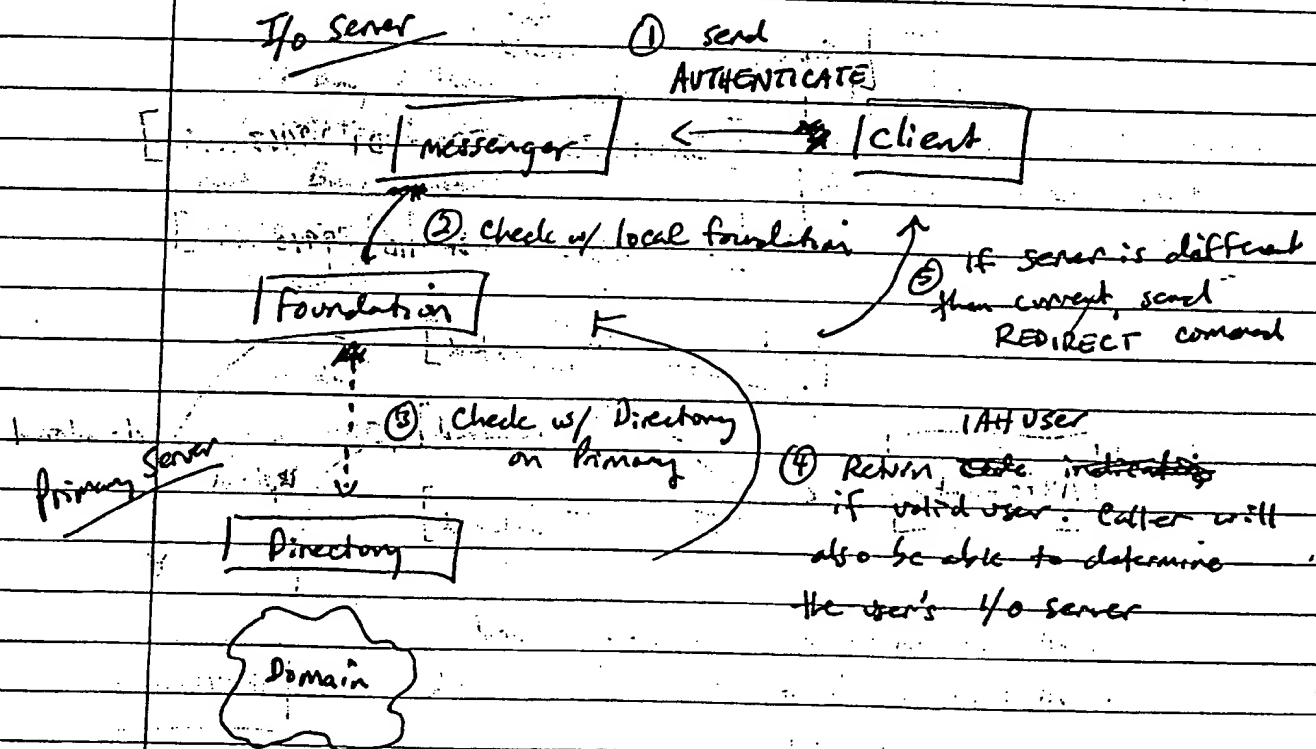 I/o Server
① send
AUTHENTICATE
messenger
Client
② check w/ local foundation
foundation
⑤ If server is different
then current, send
REDIRECT command
③ Check w/ Directory
on Primary
Primary Server
IAHUser
④ Return
if valid user. Caller will
also be able to determine
the user's I/o server
Directory
Domain